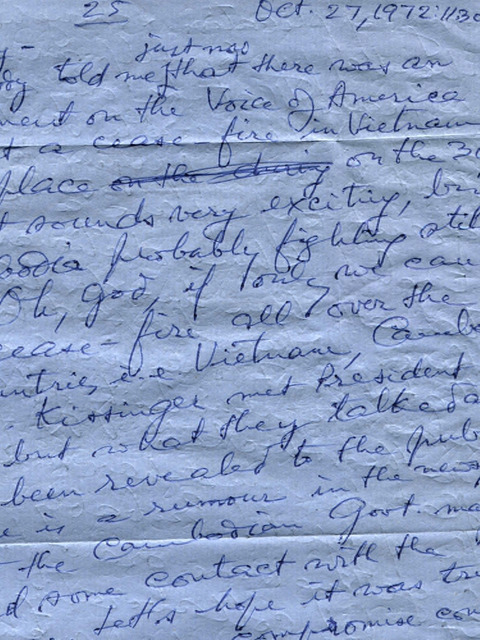 25 Oct. 27, 1972: 11:30
y - just now
told me that there was an
ment on the Voice of America
t a cease fire in Vietnam
place on the during on the 30
t sounds very exciting, bu
bodia probably fighting still
Oh, God, if only we can
cease-fire all over the
untries, i.e Vietnam, Cambo
. Kissinger met President
but what they talked a
been revealed to the pub
e is a rumour in the news
t the Cambodian Govt. ma
d some contact with the
Let's hope it was tru
compromise con